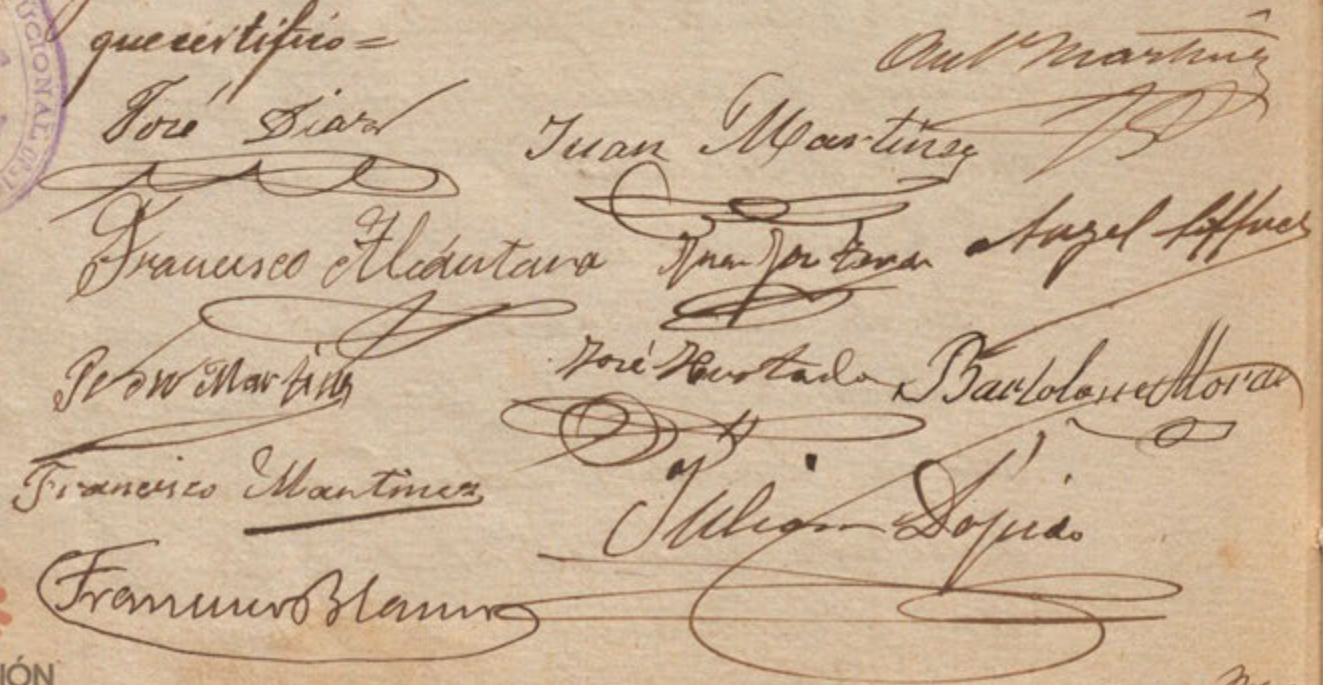 que certifico=
Antº Martinez
José Diaz
Juan Martinez
Francisco Alcántara
Angel
Pedro Martinez
José Hurtado
Bartolome Mora
Francisco Martinez
Julian Dopido
Francisco Blanco
UCIONAL
IÓN